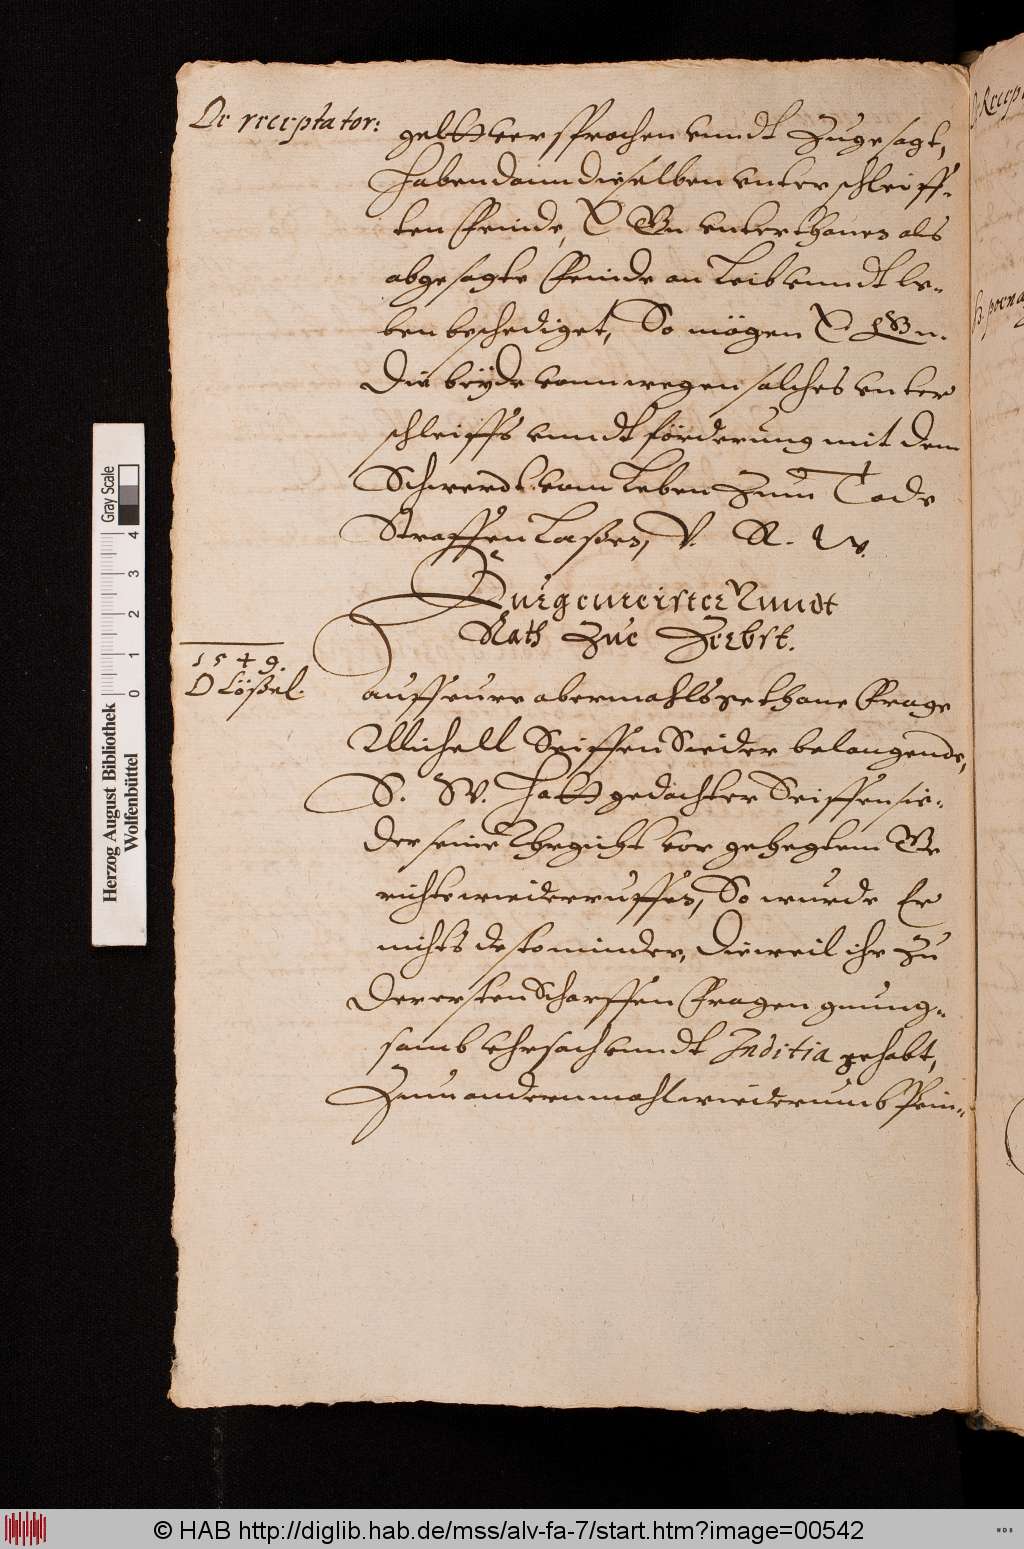 De receptator:
geldt versprochen vnndt Zugesagt,
Haben dann dieselben unter schleiff-
ten Feinde, E. Gn vnterthanen als
abgesagte Feinde an Leib vnndt le-
ben beschediget, So mögen E. Gn.
Die beyde vonn wegen solches vnter
schleiffs vnndt förderung mit dem
Schwerdt vom Leben Zum Tode
Straffen Laßen, V. R. W.
Burgemeister Vnndt
Rath Zue Zerbst.
1549.
D Lößel.
auff eure abermahls gethane Frage
Michell Seiffen Sieder belangende,
S. W. Hatt gedachter Seiffensie-
der seine Uhrgicht vor gehegtem Ge
richte wiederruffen, So wurde Er
nichts destominder, Dieweil ihr Zu
Der ersten Scharffen Fragen gnung-
samb Uhrsach vnndt Inditia gehabt,
Zum andernmahl wiederumb Pein-
Herzog August Bibliothek
Wolfenbüttel
Gray Scale
0 1 2 3 4
© HAB http://diglib.hab.de/mss/alv-fa-7/start.htm?image=00542